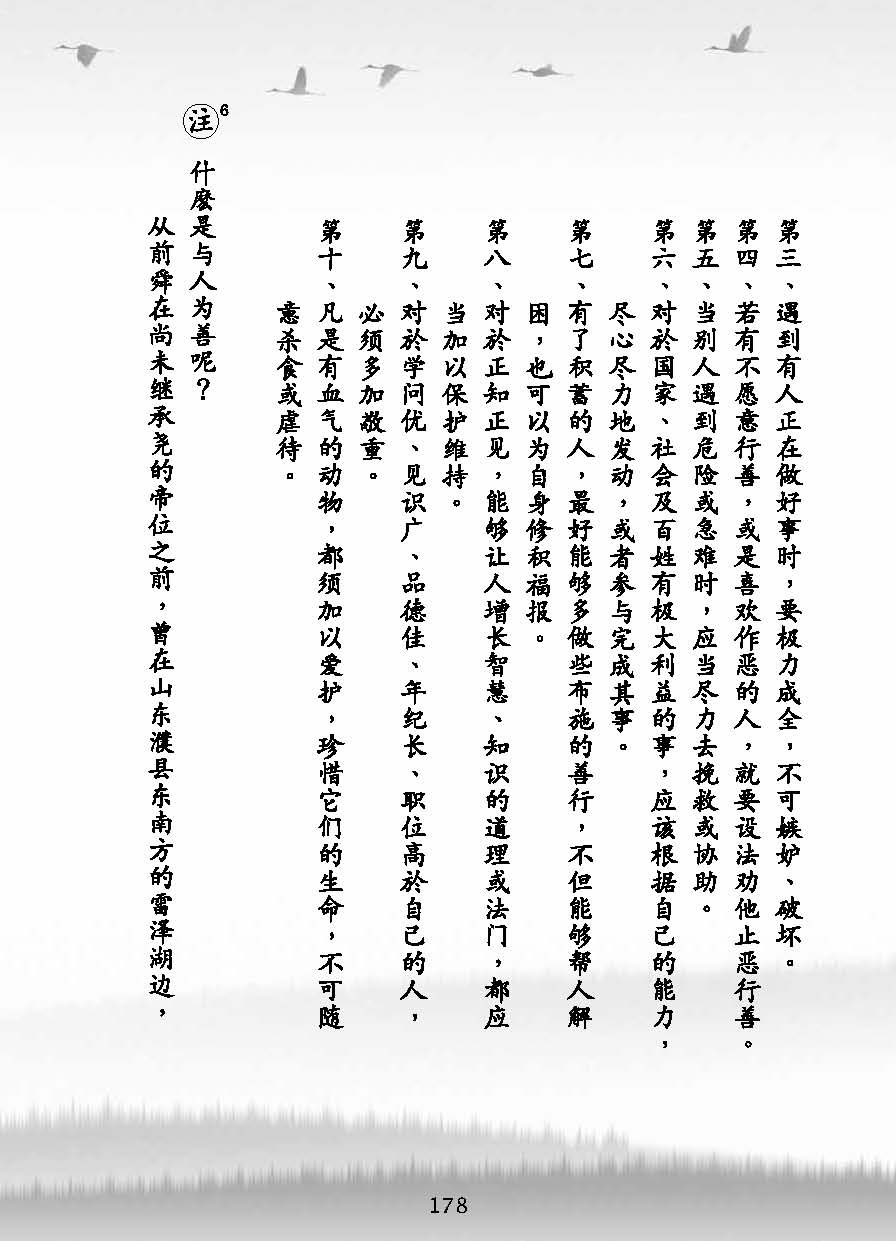 第三、遇到有人正在做好事时，要极力成全，不可嫉妒、破坏。
第四、若有不愿意行善，或是喜欢作恶的人，就要设法劝他止恶行善。
第五、当别人遇到危险或急难时，应当尽力去挽救或协助。
第六、对於国家、社会及百姓有极大利益的事，应该根据自己的能力，
尽心尽力地发动，或者参与完成其事。
第七、有了积蓄的人，最好能够多做些布施的善行，不但能够帮人解
困，也可以为自身修积福报。
第八、对於正知正见，能够让人增长智慧、知识的道理或法门，都应
当加以保护维持。
第九、对於学问优、见识广、品德佳、年纪长、职位高於自己的人，
必须多加敬重。
第十、凡是有血气的动物，都须加以爱护，珍惜它们的生命，不可随
意杀食或虐待。
注6 什麽是与人为善呢？
从前舜在尚未继承尧的帝位之前，曾在山东濮县东南方的雷泽湖边，
178